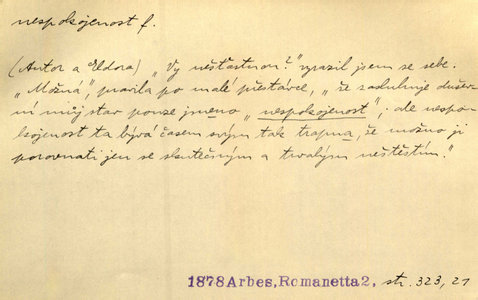 nespokojenost f.
(Autor a Eldora) „Vy nešťastnou?" vyrazil jsem ze sebe.
„Možná", pravila po malé přestávce, „že zasluhuje dušev-
ní můj stav pouze jméno „nespokojenost"; ale nespo-
kojenost ta bývá časem svým tak trapna, že možno ji
porovnati jen se skutečným a trvalým neštěstím."
1878 Arbes, Romanetta 2, str. 323, 21